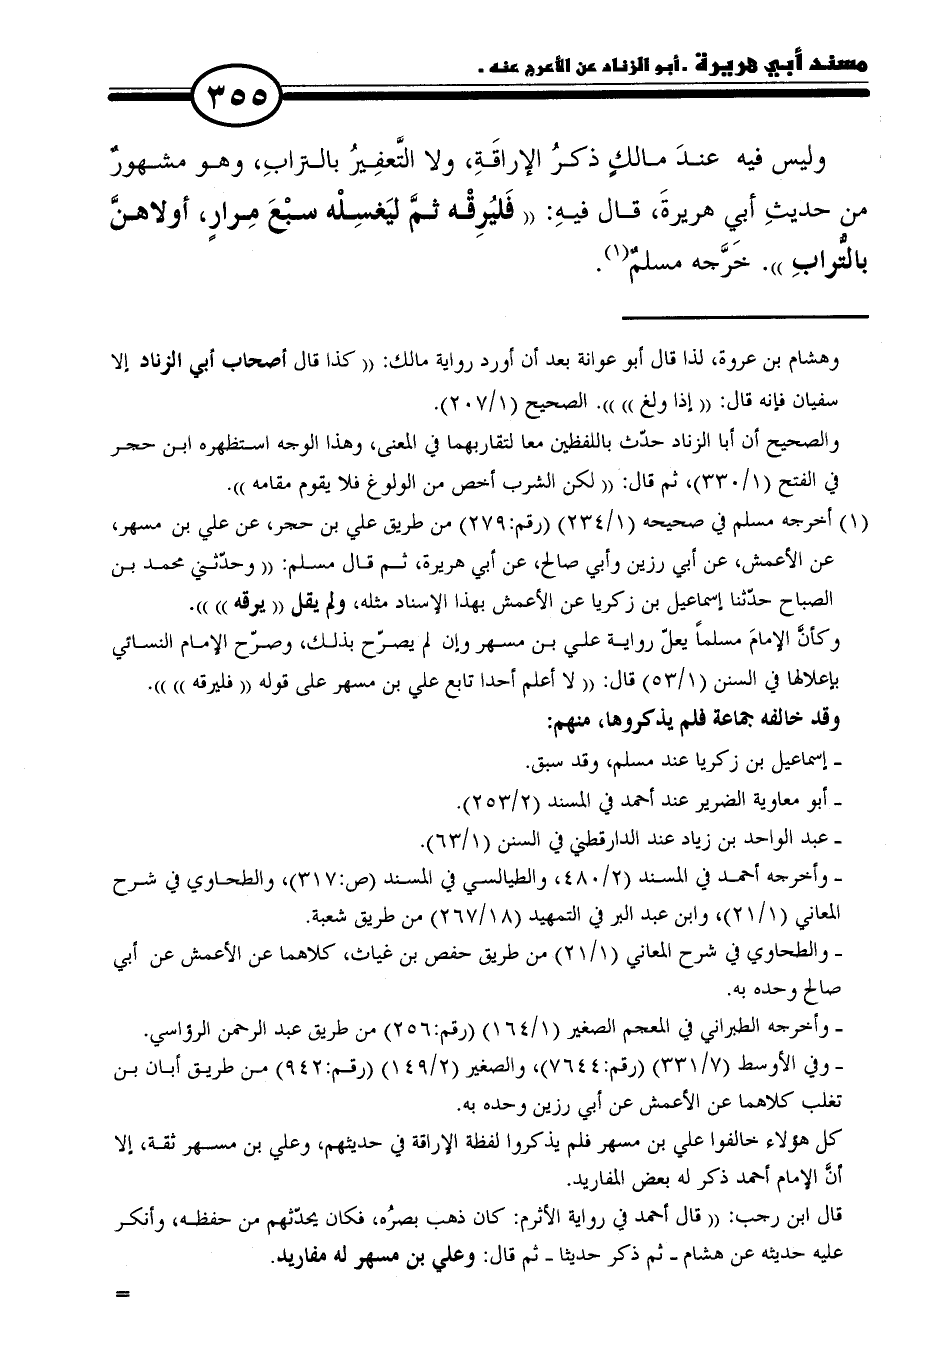 مسند أبي هريرة . أبو الزناد عن الأعرج عنه .
٣٥٥
وليس فيه عندَ مالكٍ ذكرُ الإراقَةِ، ولا التَّعفِيرُ بالتراب، وهو مشهورٌ
من حديثِ أبي هريرةَ، قال فيهِ: (( فَليُرِقْه ثمَّ لْيَغسِلْه سبْعَ مِرارٍ، أولاهنَّ
بالتُّرابِ )). خَرَّجه مسلمٌ(١).
وهشام بن عروة، لذا قال أبو عوانة بعد أن أورد رواية مالك: (( كذا قال أصحاب أبي الزناد إلا
سفيان فإنه قال: (( إذا ولغ )) )). الصحيح (٢٠٧/١).
والصحيح أن أبا الزناد حدّث باللفظين معا لتقاربهما في المعنى، وهذا الوجه استظهره ابن حجر
في الفتح (٣٣٠/١)، ثم قال: (( لكن الشرب أخص من الولوغ فلا يقوم مقامه )).
(١) أخرجه مسلم في صحيحه (٢٣٤/١) (رقم:٢٧٩) من طريق علي بن حجر، عن علي بن مسهر،
عن الأعمش، عن أبي رزين وأبي صالح، عن أبي هريرة، ثم قال مسلم: (( وحدّثني محمد بن
الصباح حدّثنا إسماعيل بن زكريا عن الأعمش بهذا الإسناد مثله، ولم يقل (( يرقه )) )).
وكأنَّ الإمامَ مسلماً يعلّ رواية علي بن مسهر وإن لم يصرّح بذلك، وصرّح الإمام النسائي
بإعلالها في السنن (٥٣/١) قال: (( لا أعلم أحدا تابع علي بن مسهر على قوله (( فليرقه )) )).
وقد خالفه جماعة فلم يذكروها، منهم:
ـ إسماعيل بن زكريا عند مسلم، وقد سبق.
ـ أبو معاوية الضرير عند أحمد في المسند (٢٥٣/٢).
ـ عبد الواحد بن زياد عند الدارقطني في السنن (٦٣/١).
ـ وأخرجه أحمد في المسند (٤٨٠/٢، والطيالسي في المسند (ص:٣١٧)، والطحاوي في شرح
المعاني (٢١/١)، وابن عبد البر في التمهيد (٢٦٧/١٨) من طريق شعبة.
ـ والطحاوي في شرح المعاني (٢١/١) من طريق حفص بن غياث، كلاهما عن الأعمش عن أبي
صالح وحده به.
ـ وأخرجه الطبراني في المعجم الصغير (١٦٤/١) (رقم:٢٥٦) من طريق عبد الرحمن الرؤاسي.
ـ وفي الأوسط (٣٣١/٧) (رقم:٧٦٤٤)، والصغير (١٤٩/٢) (رقم:٩٤٢) من طريق أبان بن
تغلب كلاهما عن الأعمش عن أبي رزين وحده به.
كل هؤلاء خالفوا علي بن مسهر فلم يذكروا لفظة الإراقة في حديثهم، وعلي بن مسهر ثقة، إلا
أنَّ الإمام أحمد ذكر له بعض المفاريد.
قال ابن رجب: (( قال أحمد في رواية الأثرم: كان ذهب بصرُه، فكان يحدّثهم من حفظه، وأنكر
عليه حديثه عن هشام ـ ثم ذكر حديثا ـ ثم قال: وعلي بن مسهر له مفاريد.
=